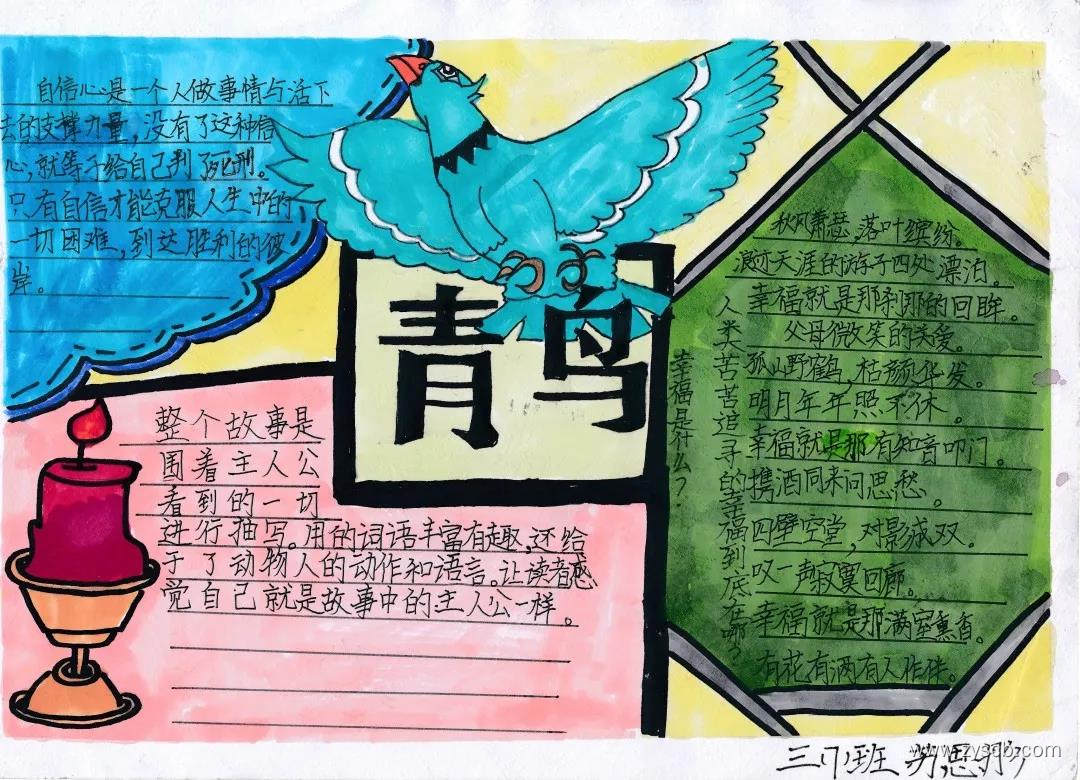 自信心是一个人做事情与活下
去的支撑力量，没有了这种信
心，就等于给自己判了死刑。
只有自信才能克服人生中的
一切困难，到达胜利的彼
岸。
青鸟
整个故事是
围着主人公
看到的一切
进行描写。用的词语丰富有趣，还给
于了动物人的动作和语言。让读者感
觉自己就是故事中的主人公一样。
幸福是什么？
人类苦苦追寻的幸福到底在哪？
秋风萧瑟，落叶缤纷。
浪迹天涯的游子四处漂泊。
幸福就是那刹那的回眸。
父母微笑的关爱。
孤山野鹤，枯颜华发。
明月年年照不休。
幸福就是那有知音叩门。
携酒同来问思愁。
四壁空堂，对影成双。
叹一声寂寞回廊。
幸福就是那满室熏香。
有花有酒有人作伴。
三(7)班
www.zyscb.com